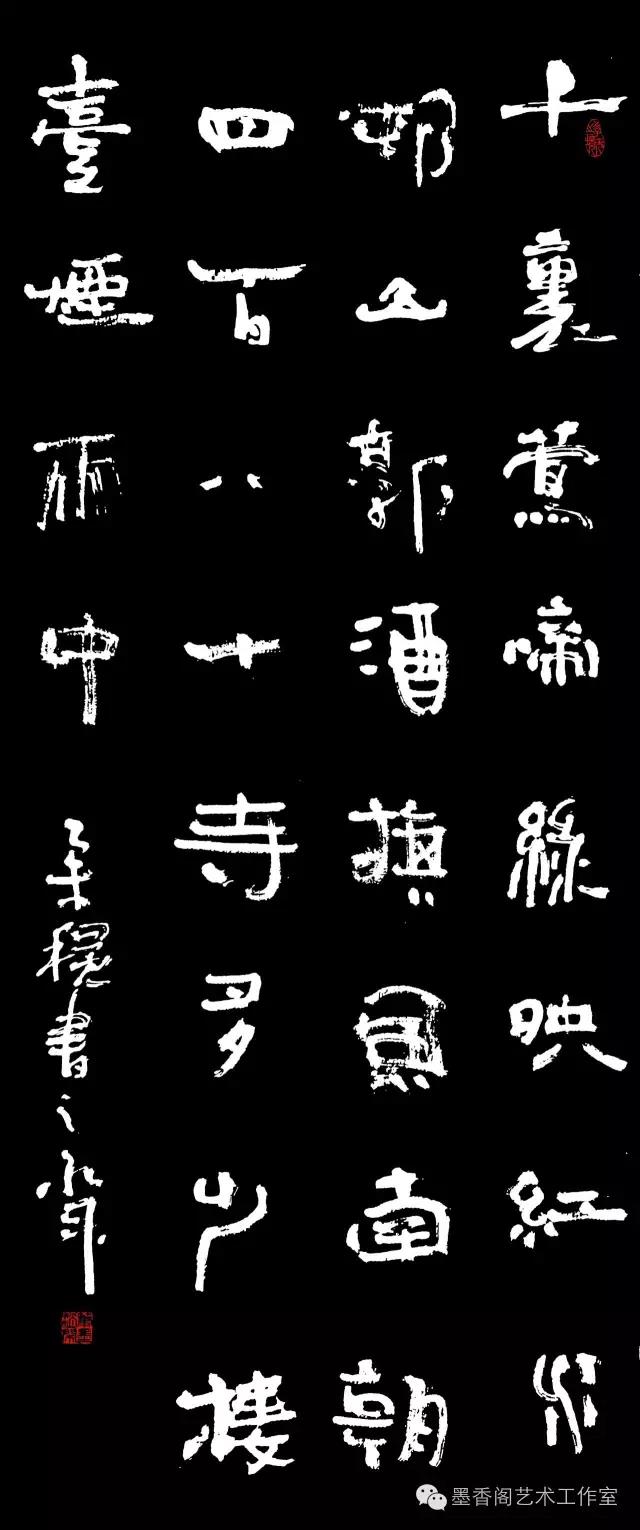 千裏鶯啼綠映紅水
邨山郭酒旗風南朝
四百八十寺多少樓
臺煙雨中
乙未穐書之
墨香阁艺术工作室